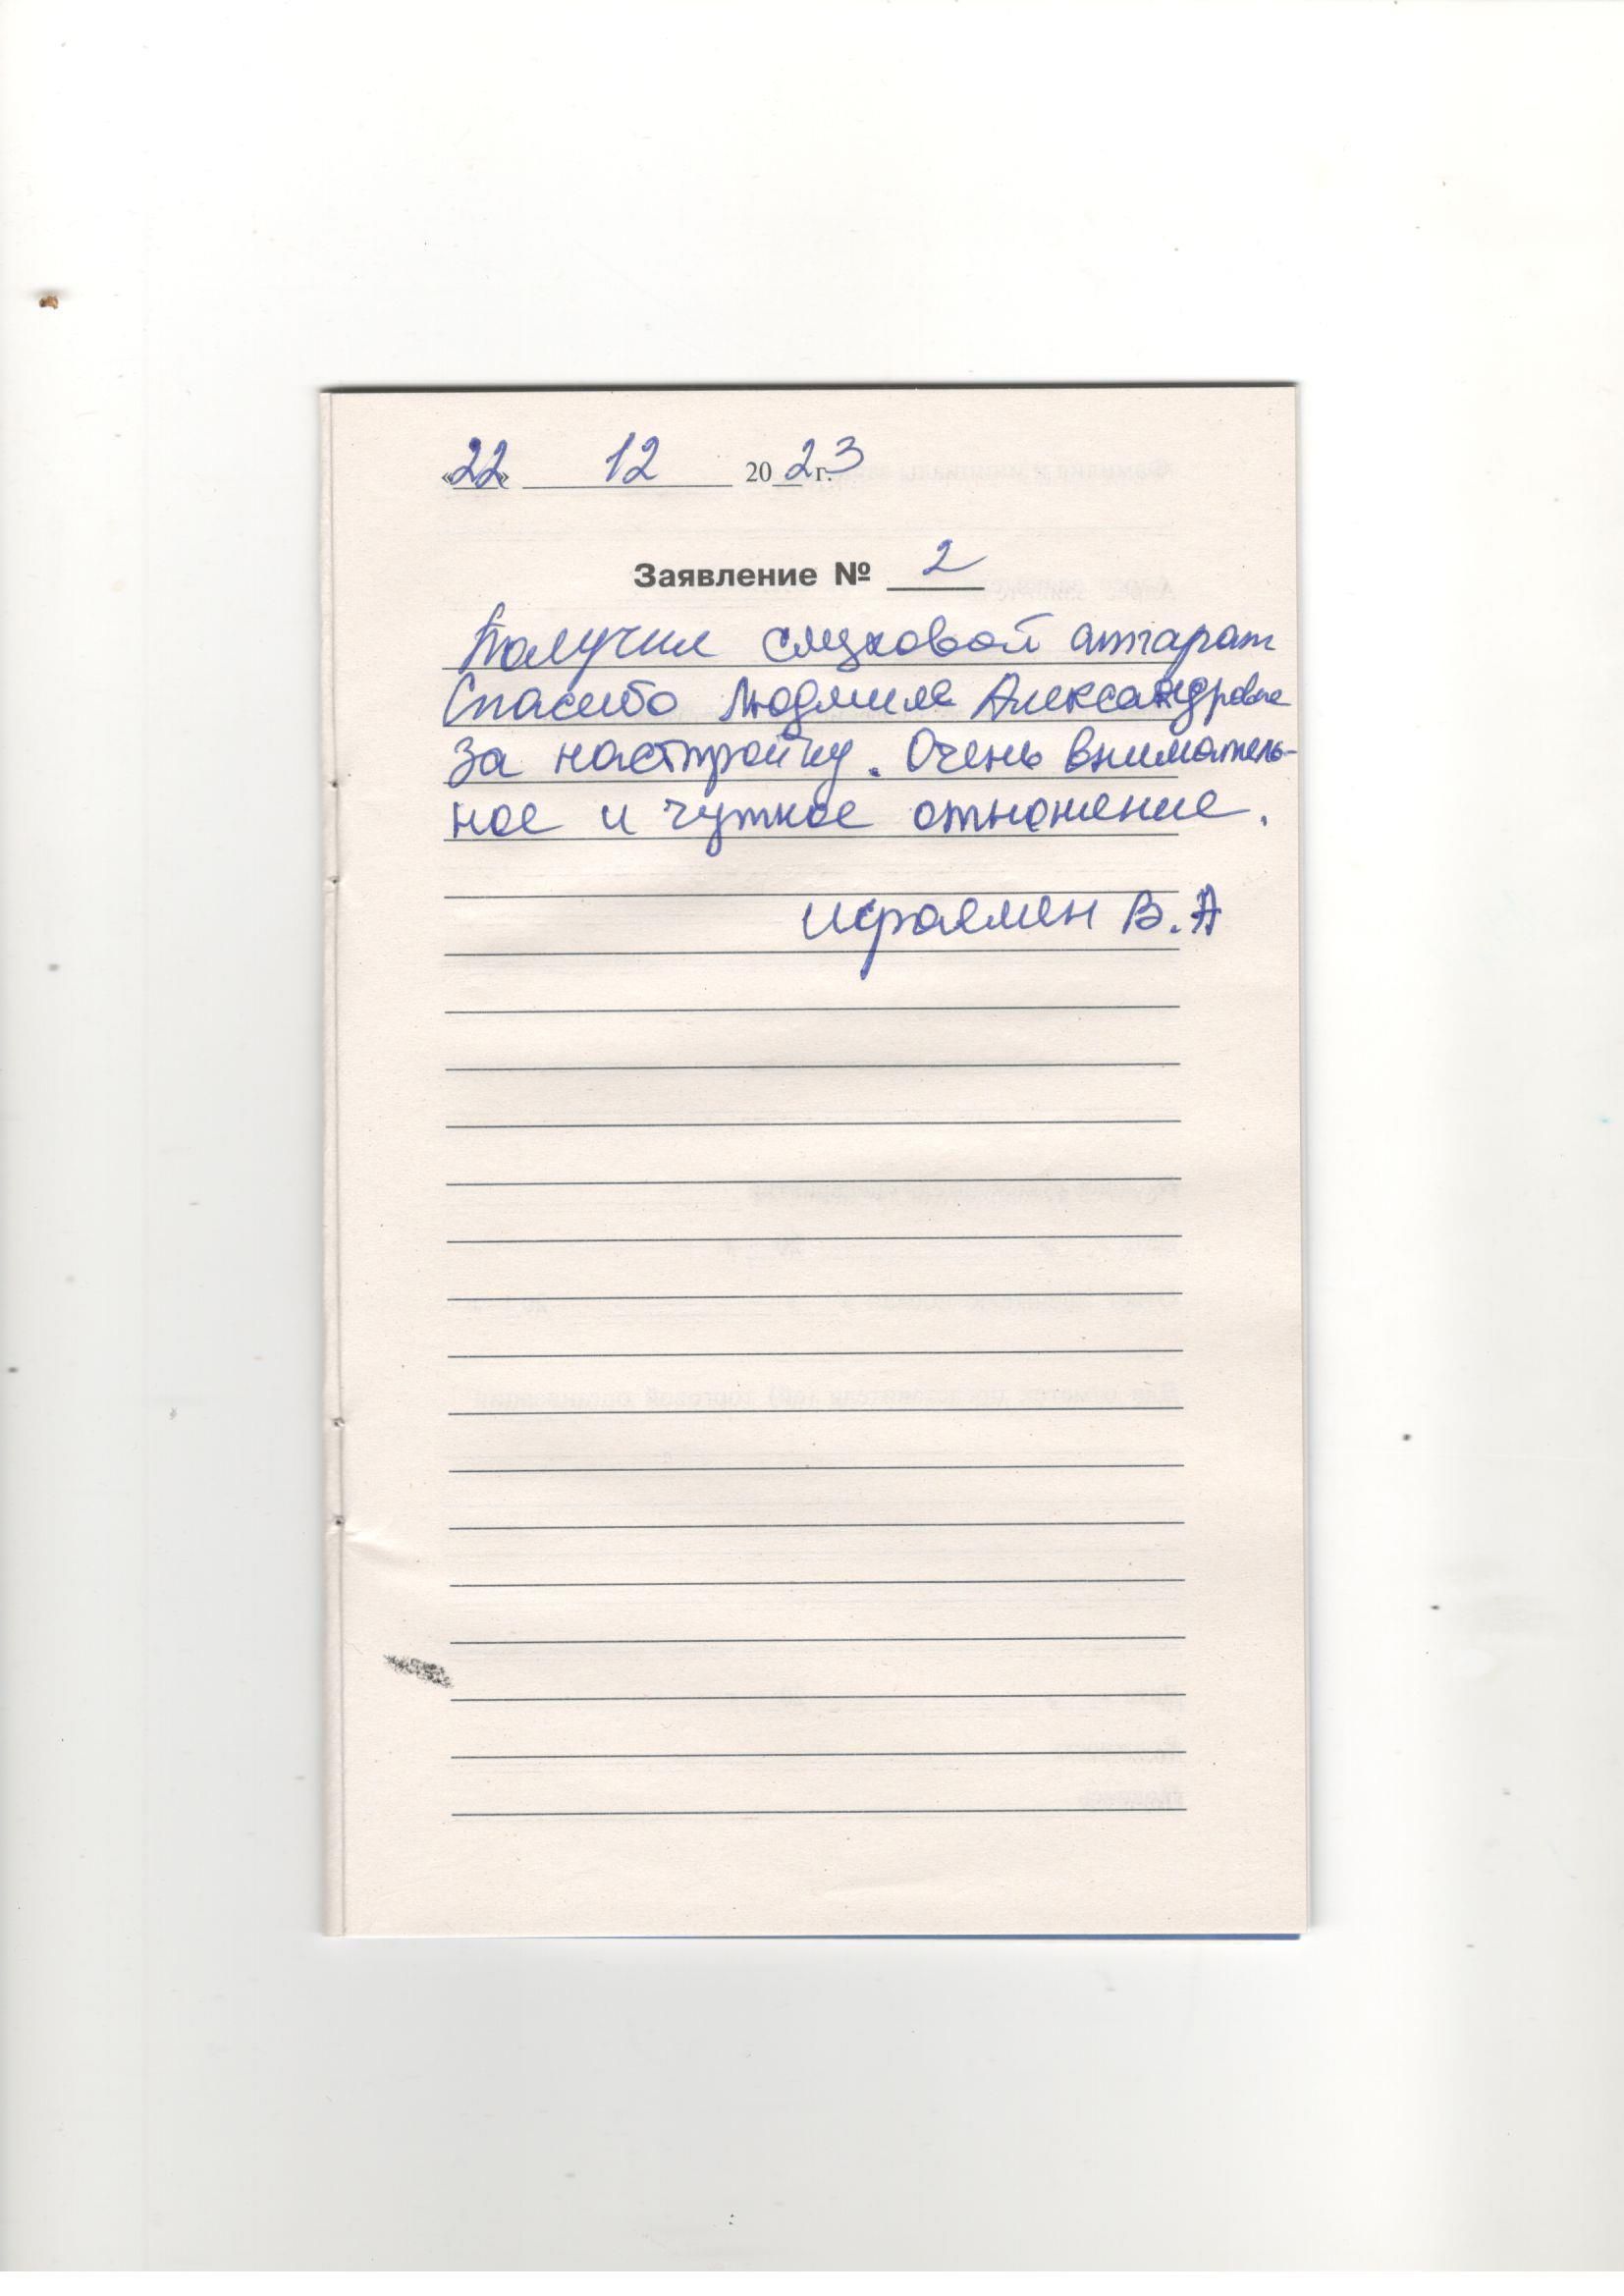 «22» 12 2023 г.
Заявление № 2
Получил слуховой аппарат
Спасибо Людмиле Александровне
за настройку. Очень вниматель-
ное и чуткое отношение.
В.А